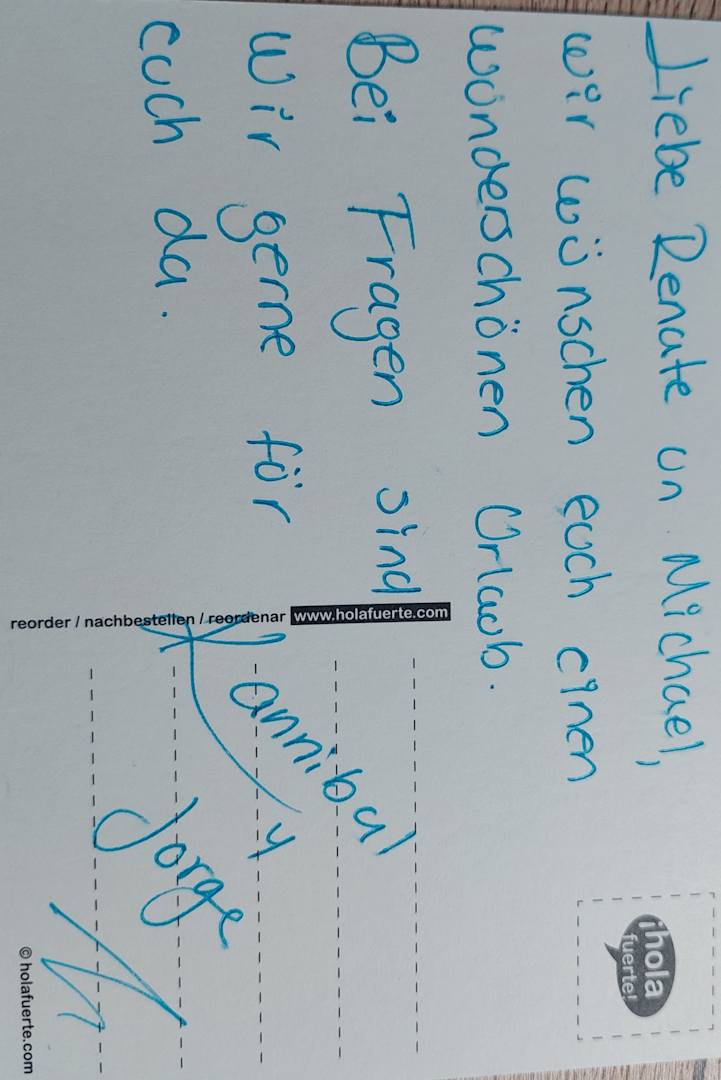 Liebe Renate un Michael,
wir wünschen euch einen
wunderschönen Urlaub.
Bei Fragen sind
wir gerne für
euch da.
Hannibal
y
Jorge
reorder / nachbestellen / reordenar www.holafuerte.com
¡hola
fuerte!
© holafuerte.com